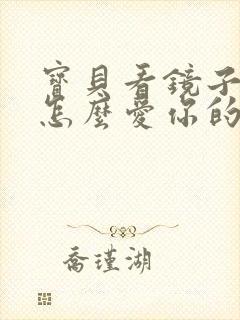 寶貝看鏡子
怎麼愛你的
喬瑾湖